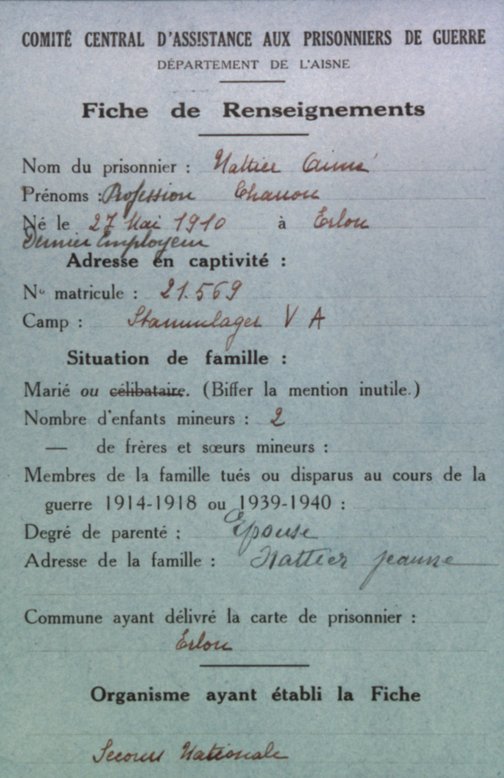 COMITÉ CENTRAL D'ASSISTANCE AUX PRISONNIERS DE GUERRE
DÉPARTEMENT DE L'AISNE
Fiche de Renseignements
Nom du prisonnier : Nattier Aimé
Prénoms : Profession
Né le 27 Mai 1910 à Erlon
Dernier Employeur
Adresse en captivité :
No matricule : 21.569
Camp : Stammlager V A
Situation de famille :
Marié ou célibataire. (Biffer la mention inutile.)
Nombre d'enfants mineurs : 2
— de frères et sœurs mineurs :
Membres de la famille tués ou disparus au cours de la
guerre 1914-1918 ou 1939-1940 :
Degré de parenté : Epouse
Adresse de la famille : Nattier Jeanne
Commune ayant délivré la carte de prisonnier :
Erlon
Organisme ayant établi la Fiche
Secours Nationale